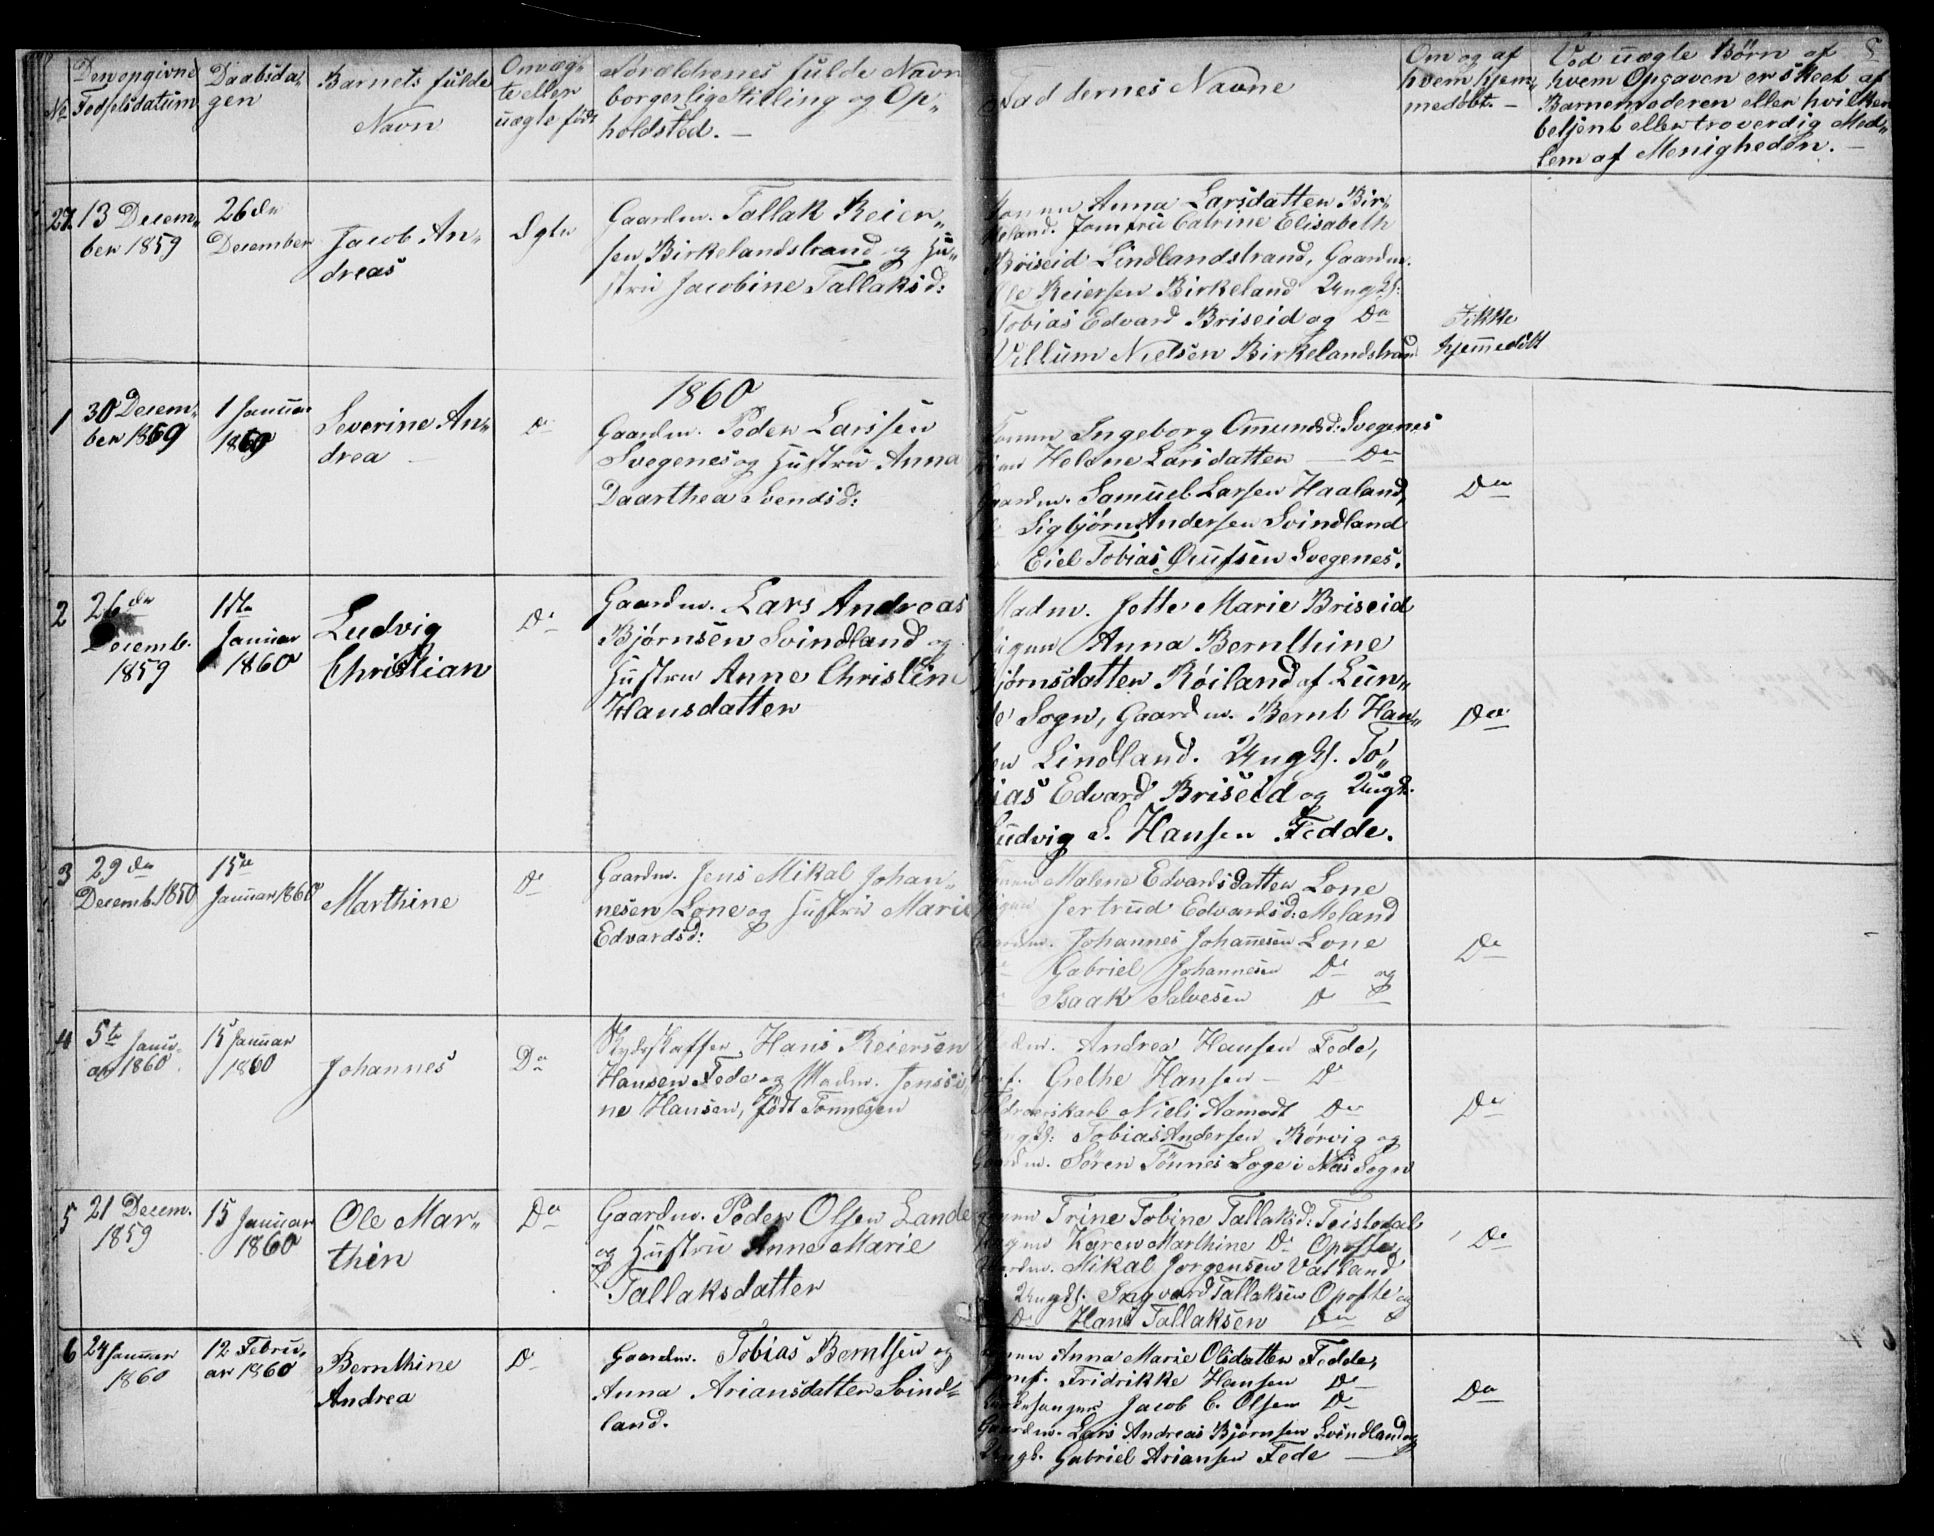 No
Den opgivne
Fødselsdatum
Daabsda-
gen
Barnets fulde
Navn
Om æg-
te eller
uægte født
Forældrenes fulde Navn
borgerlig Stilling og Op-
holdsted. —
Faddernes Navne
Om og af
hvem hjem-
medøbt. —
Ved uægte Børn af
hvem Opgaven er skeet af
Barnemoderen eller hvilken
betjent eller troverdig Med-
lem af Menigheden. —
27.
13 Decem-
ber 1859
26de
December
Jacob An-
dreas
Ægte
Gaardm. Tallak Reier-
sen Birkelandstrand og Hu-
stru Jacobine Tallaksd:
Anna Larsdatter Bir-
keland. Jomfru Catrine Elisabeth
Briseid Lindlandstrand, Gaardm.
Ole Reiersen Birkeland Ungk:
Tobias Edvard Briseid og Do
Villum Nielsen Birkelandstrand
Ikke
hjemmedöbt
1860
1
30 Decem-
ber 1859
1 Januar
1860
Severine An-
drea —
Do
Gaardm. Peder Larssen
Svegenes og Hustru Anna
Daarthea Svendsd:
Ingeborg Omundsd: Svegenes
Helene Larsdatter — Do
Gaardm. Samuel Larsen Haaland,
Sigbjørn Andersen Svindland
Eiel Tobias Svegenes.
Do
2
26de
Decemb.
1859
1ste
Januar
1860
Ludvig
Christian
Do
Gaardm. Lars Andreas
Bjørnsen Svindland og
Hustru Anne Christine
Hansdatter
Madm. Jette Marie Briseid
Anna Bernthine
Bjørnsdatter Røiland af Lun-
de Sogn, Gaardm. Bernt Han-
sen Lindland. Ungk. To-
bias Edvard Briseid og Ungk.
Ludvig S. Hansen Fedde.
Do
3
29de
Decemb. 1850
15de
Januar 1860
Marthine
Do
Gaardm. Jens Mikal Johan-
nesen Lone og Hustru Marie
Edvardsd:
Malene Edvardsdatter Lone
Jertrud Edvardsd: Meland
Gaardm. Johannes Johannesen Lone
Do Gabriel Johannesen Do og
Do Isaak Salvesen Do
Do
4
5te Janu-
ar 1860
15 Januar
1860
Johannes
Do
Skydsskaffer Hans Reiersen
Hansen Fede og Madm. Jenssi-
ne Hansen, født Tønnesen
Madm. Andrea Hansen Fede,
Jomf. Grethe Hansen — Do
Niels Aamodt Do
Ungk: Tobias Andersen Rørvig og
Gaardm. Søren Tønnes Loge i Næs Sogn
Do
5
21 Decem.
1859
15 Januar
1860
Ole Mar-
thin
Do
Gaardm. Peder Olsen Lande
og Hustru Anne Marie
Tallaksdatter
Trine Tobine Tallaksd: Teistedal
Karen Marthine Do Opofte,
Gaardm. Mikal Jørgensen Vatland
Ungk. Ingvard Tallaksen Opofte og
Do Hans Tallaksen Do
Do
6
24 Januar
1860
12 Febru-
ar 1860
Bernthine
Andrea
Do
Gaardm. Tobias Berntsen og
Anna Ariansdatter Svind-
land.
Anna Marie Olsdatter Fedde,
Jomf. Fridrikke Hansen Do
Kirkesanger Jacob C. Olsen Do
Gaardm. Lars Andreas Bjørnsen Svindland og
Ungk. Gabriel Ariansen Fede —
Do